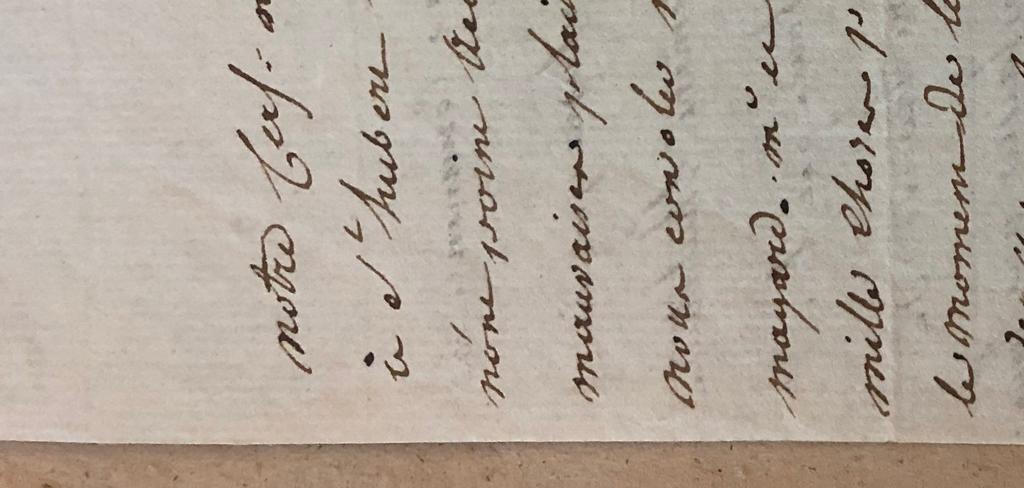 notre Cerf
à St hubert
n'ont point
mauvaises plai
nous consoler
mayard. m.r et
mille choses p
le moment de la